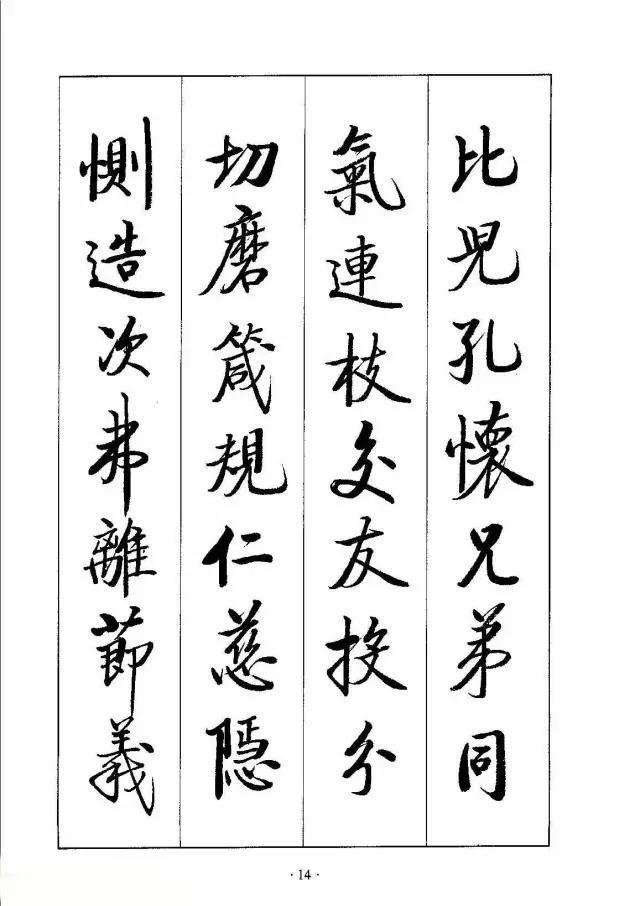 比兒孔懷兄弟同
氣連枝交友投分
切磨箴規仁慈隱
惻造次弗離節義
· 14 ·